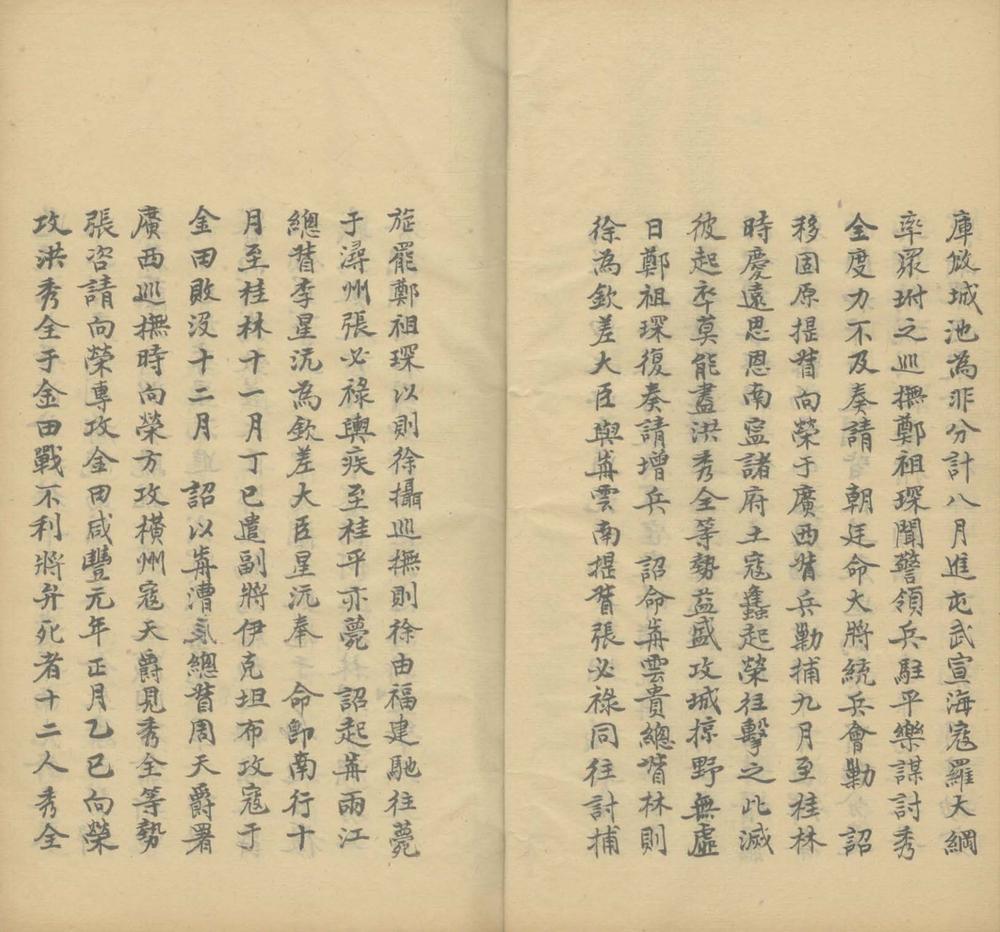 庫倣城池為非分計八月進屯武宣海寇羅大綱
率眾坿之巡撫鄭祖琛聞警領兵駐平樂謀討秀
全度力不及奏請　朝廷命大將統兵會勦　詔
移固原提督向榮于廣西督兵勦捕九月至桂林
時慶遠思恩南寍諸府土寇蠭起榮往擊之此滅
彼起卒莫能盡洪秀全等勢益盛攻城掠野無虛
日鄭祖琛復奏請增兵　詔命前雲貴總督林則
徐為欽差大臣與前雲南提督張必祿同往討捕
旋罷鄭祖琛以則徐攝巡撫則徐由福建馳往薨
于潯州張必祿輿疾至桂平亦薨　詔起前兩江
總督李星沅為欽差大臣星沅奉　命卽南行十
月至桂林十一月丁巳遣副將伊克坦布攻寇于
金田敗沒十二月　詔以前漕運總督周天爵署
廣西巡撫時向榮方攻橫州寇天爵見秀全等勢
張咨請向榮專攻金田咸豐元年正月乙巳向榮
攻洪秀全于金田戰不利將弁死者十二人秀全